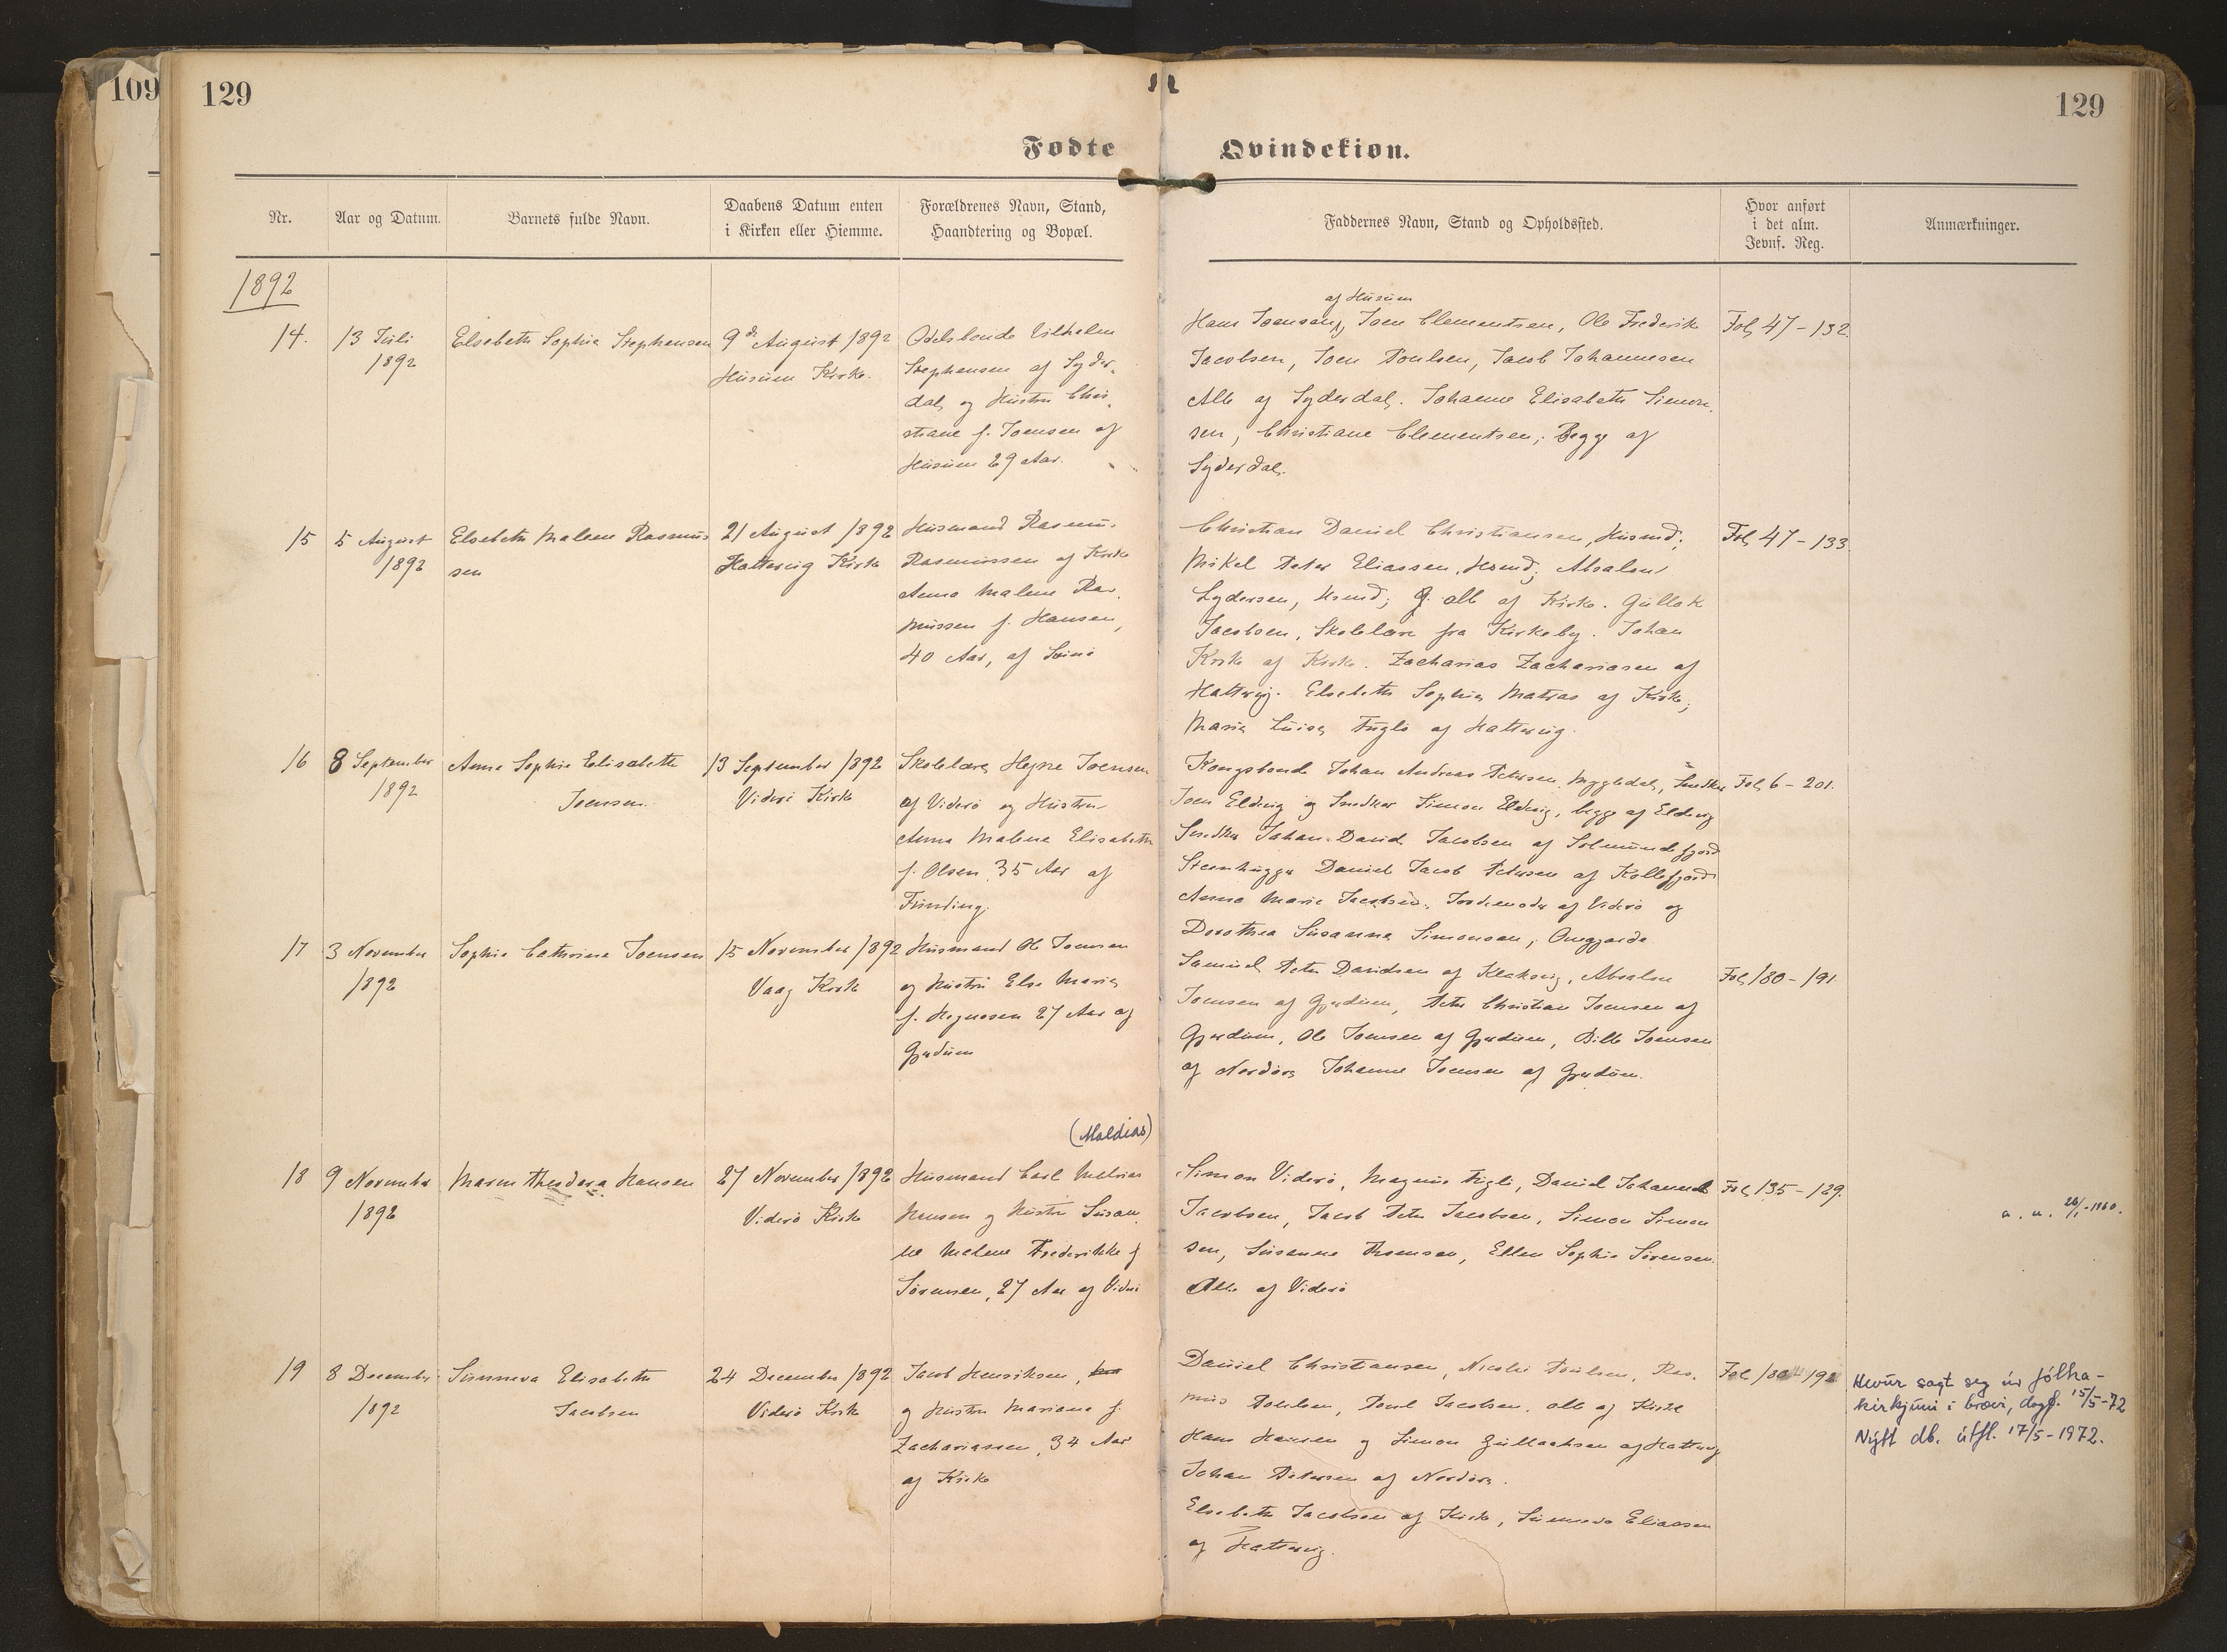 109
129
129
Fødte
Qvindekiøn.
Nr.
Aar og Datum.
Barnets fulde Navn.
Daabens Datum enten
i Kirken eller Hiemme.
Forældrenes Navn, Stand,
Haandtering og Bopæl.
Faddernes Navn, Stand og Opholdssted.
Hvor anført
i det alm.
Jevnf. Reg.
Anmærkninger.
1892
14.
13 Juli
1892
Elsebeth Sophie Stephensen
9de August 1892
Husum Kirke.
Odelsbonde Vilhelm
Stephensen af Syder-
dal, og Hustru Chri-
stiane f. Joensen af
Husum 29 Aar.
af Husum
Hans Joensen, Joen Clementsen, Ole Frederik
Jacobsen, Joen Poulsen, Jacob Johannesen
Alle af Syderdal. Johanne Elisabeth Simon-
sen, Christiane Clementsen; Begge af
Syderdal.
Fol. 47 - 132.
15
5 August
1892
Elsebeth Malene Rasmus
sen
21 August 1892
Hattervig Kirke
Husmand Rasmus
Rasmussen af Kirke
Anna Malene Ras-
mussen f. Hansen,
40 Aar, af Svinø
Christian Daniel Christiansen, Husmd;
Mikel Peter Eliassen, Hsmd; Absalon
Lydersen, Hsmd; alle af Kirke. Gullak
Jacobsen, Skolelærer fra Kirkeby. Johan
Kirke af Kirke. Zacharias Zachariasen af
Hattervig. Elsebeth Sophie Matras af Kirke;
Maria Luisa Fuglø af Hattervig.
Fol. 47 - 133.
16
8 September
1892
Anne Sophie Elisabeth
Joensen.
13 September 1892
Viderø Kirke
Skolelærer Hejne Joensen
af Viderø og Hustru
Anna Malene Elisabeth
f. Olsen 35 Aar af
Funding.
Kongsbonde Johan Andreas Petersen Mygledal, Snedker
Joen Eldevig og Snedker Simon Eldevig, begge af Eldevig
Snedker Johan David Jacobsen af Solmundefjord
Steenhugger Daniel Jacob Petersen af Kollefjord
Anna Marie Jacobsen, Jordemoder af Viderø og
Dorothea Susanna Simonsen, Onegjærde
Fol. 6 - 201.
17
3 November
1892
Sophie Cathrine Joensen
15 November 1892
Vaag Kirke
Husmand Ole Joensen
og Hustru Else Marie
f. Hegnesen 27 Aar af
Gjerdum
Samuel Peter Davidsen af Klaksvig, Absalon
Joensen af Gjerdum, Peter Christian Joensen af
Gjerdum, Ole Joensen af Gjerdum, Bille Joensen
af Norderø Johanne Joensen af Gjerdum.
Fol. 180 - 191.
(Maldias)
18
9 November
1892
Maren Theodora Hansen
27 November 1892
Viderø Kirke
Husmand Carl
Hansen og Hustru Susan-
ne Malene Frederikke f.
Sørensen, 27 Aar af Viderø
Simon Viderø, Magnus Fuglø, Daniel Johannes
Jacobsen, Jacob Peter Jacobsen, Simon Simon
sen, Susanne Thomsen, Ellen Sophie Sørensen.
Alle af Viderø
Fol. 135 - 129.
a. u. 26/1-1960.
19
8 December
1892
Sunneva Elisabeth
Jacobsen
24 December 1892
Viderø Kirke
Jacob Henriksen,
og Hustru Mariane f.
Zachariassen, 34 Aar
af Kirke
Daniel Christiansen, Nicolai Poulsen, Ras-
mus Poulsen, Poul Jacobsen, alle af Kirke
Hans Hansen og Simon Gullachsen af Hattervig
Johan Petersen af Norderø.
Elsebeth Jacobsen af Kirke, Sunneva Eliassen
af Hattervig.
Fol. 180 - 192
Hevur sagt seg úr fólka-
kirkjuni í brævi, dagf. 15/5-72
Nýtt db. útfl. 17/5-1972.